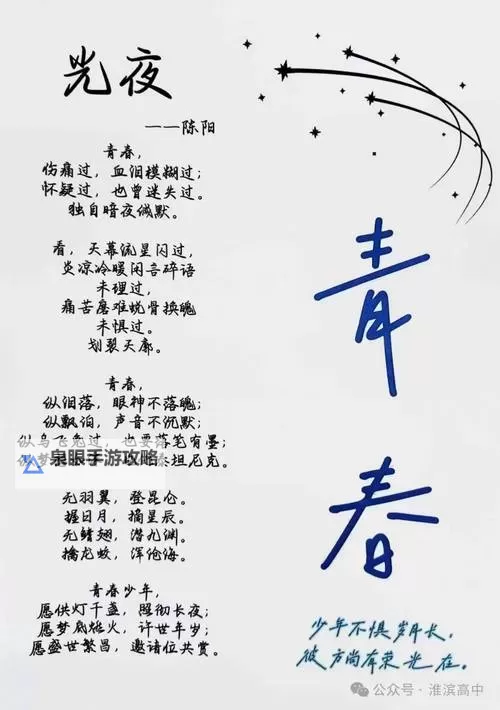 光夜
——陈阳
青春，
伤痛过，血泪模糊过；
怀疑过，也曾迷失过。
独自暗夜缄默。
看，天幕流星闪过，
炎凉冷暖闲言碎语
未理过，
痛苦磨难蜕骨换魄
未惧过。
划裂天廓。
青春，
纵泪落，眼神不落魄；
纵飘泊，声音不沉默；
纵乌飞兔过，也要落笔有墨；
泉眼手游攻略
坦尼克。
无羽翼，登昆仑。
握日月，摘星辰。
无鳍翅，潜九渊。
擒龙蛟，浑沧海。
青春少年，
愿供灯千盏，照彻长夜；
愿梦底焰火，许世年岁；
愿盛世繁昌，邀请位共赏。
青春
少年不惧岁月长，
彼方尚有荣光在。
公众号·淮滨高中